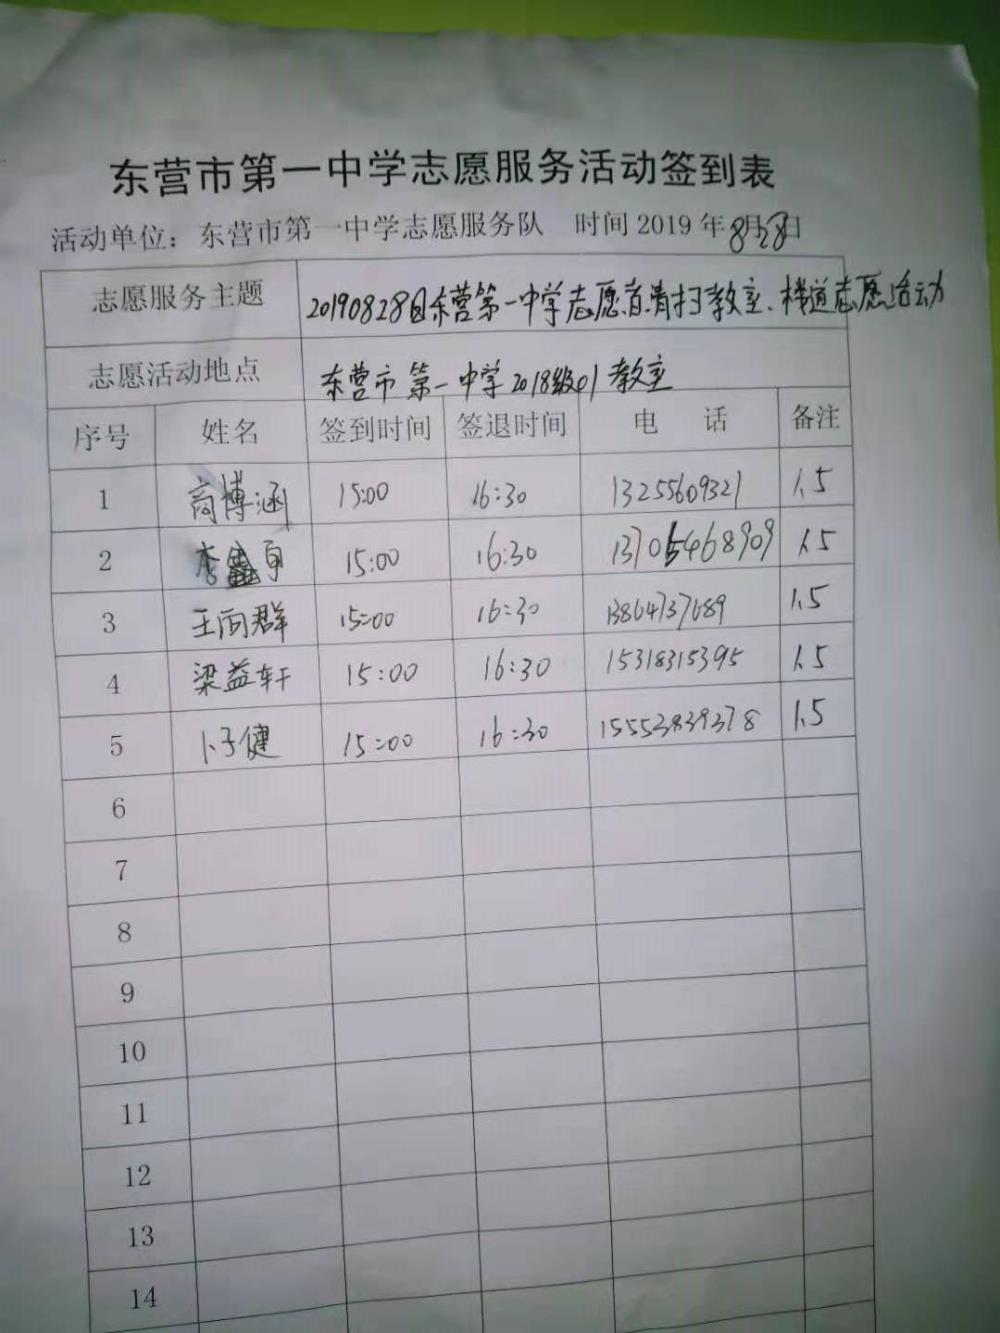 东营市第一中学志愿服务活动签到表
活动单位：东营市第一中学志愿服务队 时间 2019 年 8月28日
志愿服务主题 20190828日东营第一中学志愿者清扫教室、楼道志愿活动
志愿活动地点 东营市第一中学2018级01教室
序号 姓名 签到时间 签退时间 电 话 备注
1 商博涵 15:00 16:30 13255609321 1.5
2 李鑫 15:00 16:30 13705468909 1.5
3 王雨群 15:00 16:30 13864737689 1.5
4 梁益轩 15:00 16:30 15318315395 1.5
5 卜子健 15:00 16:30 15553839378 1.5
6
7
8
9
10
11
12
13
14